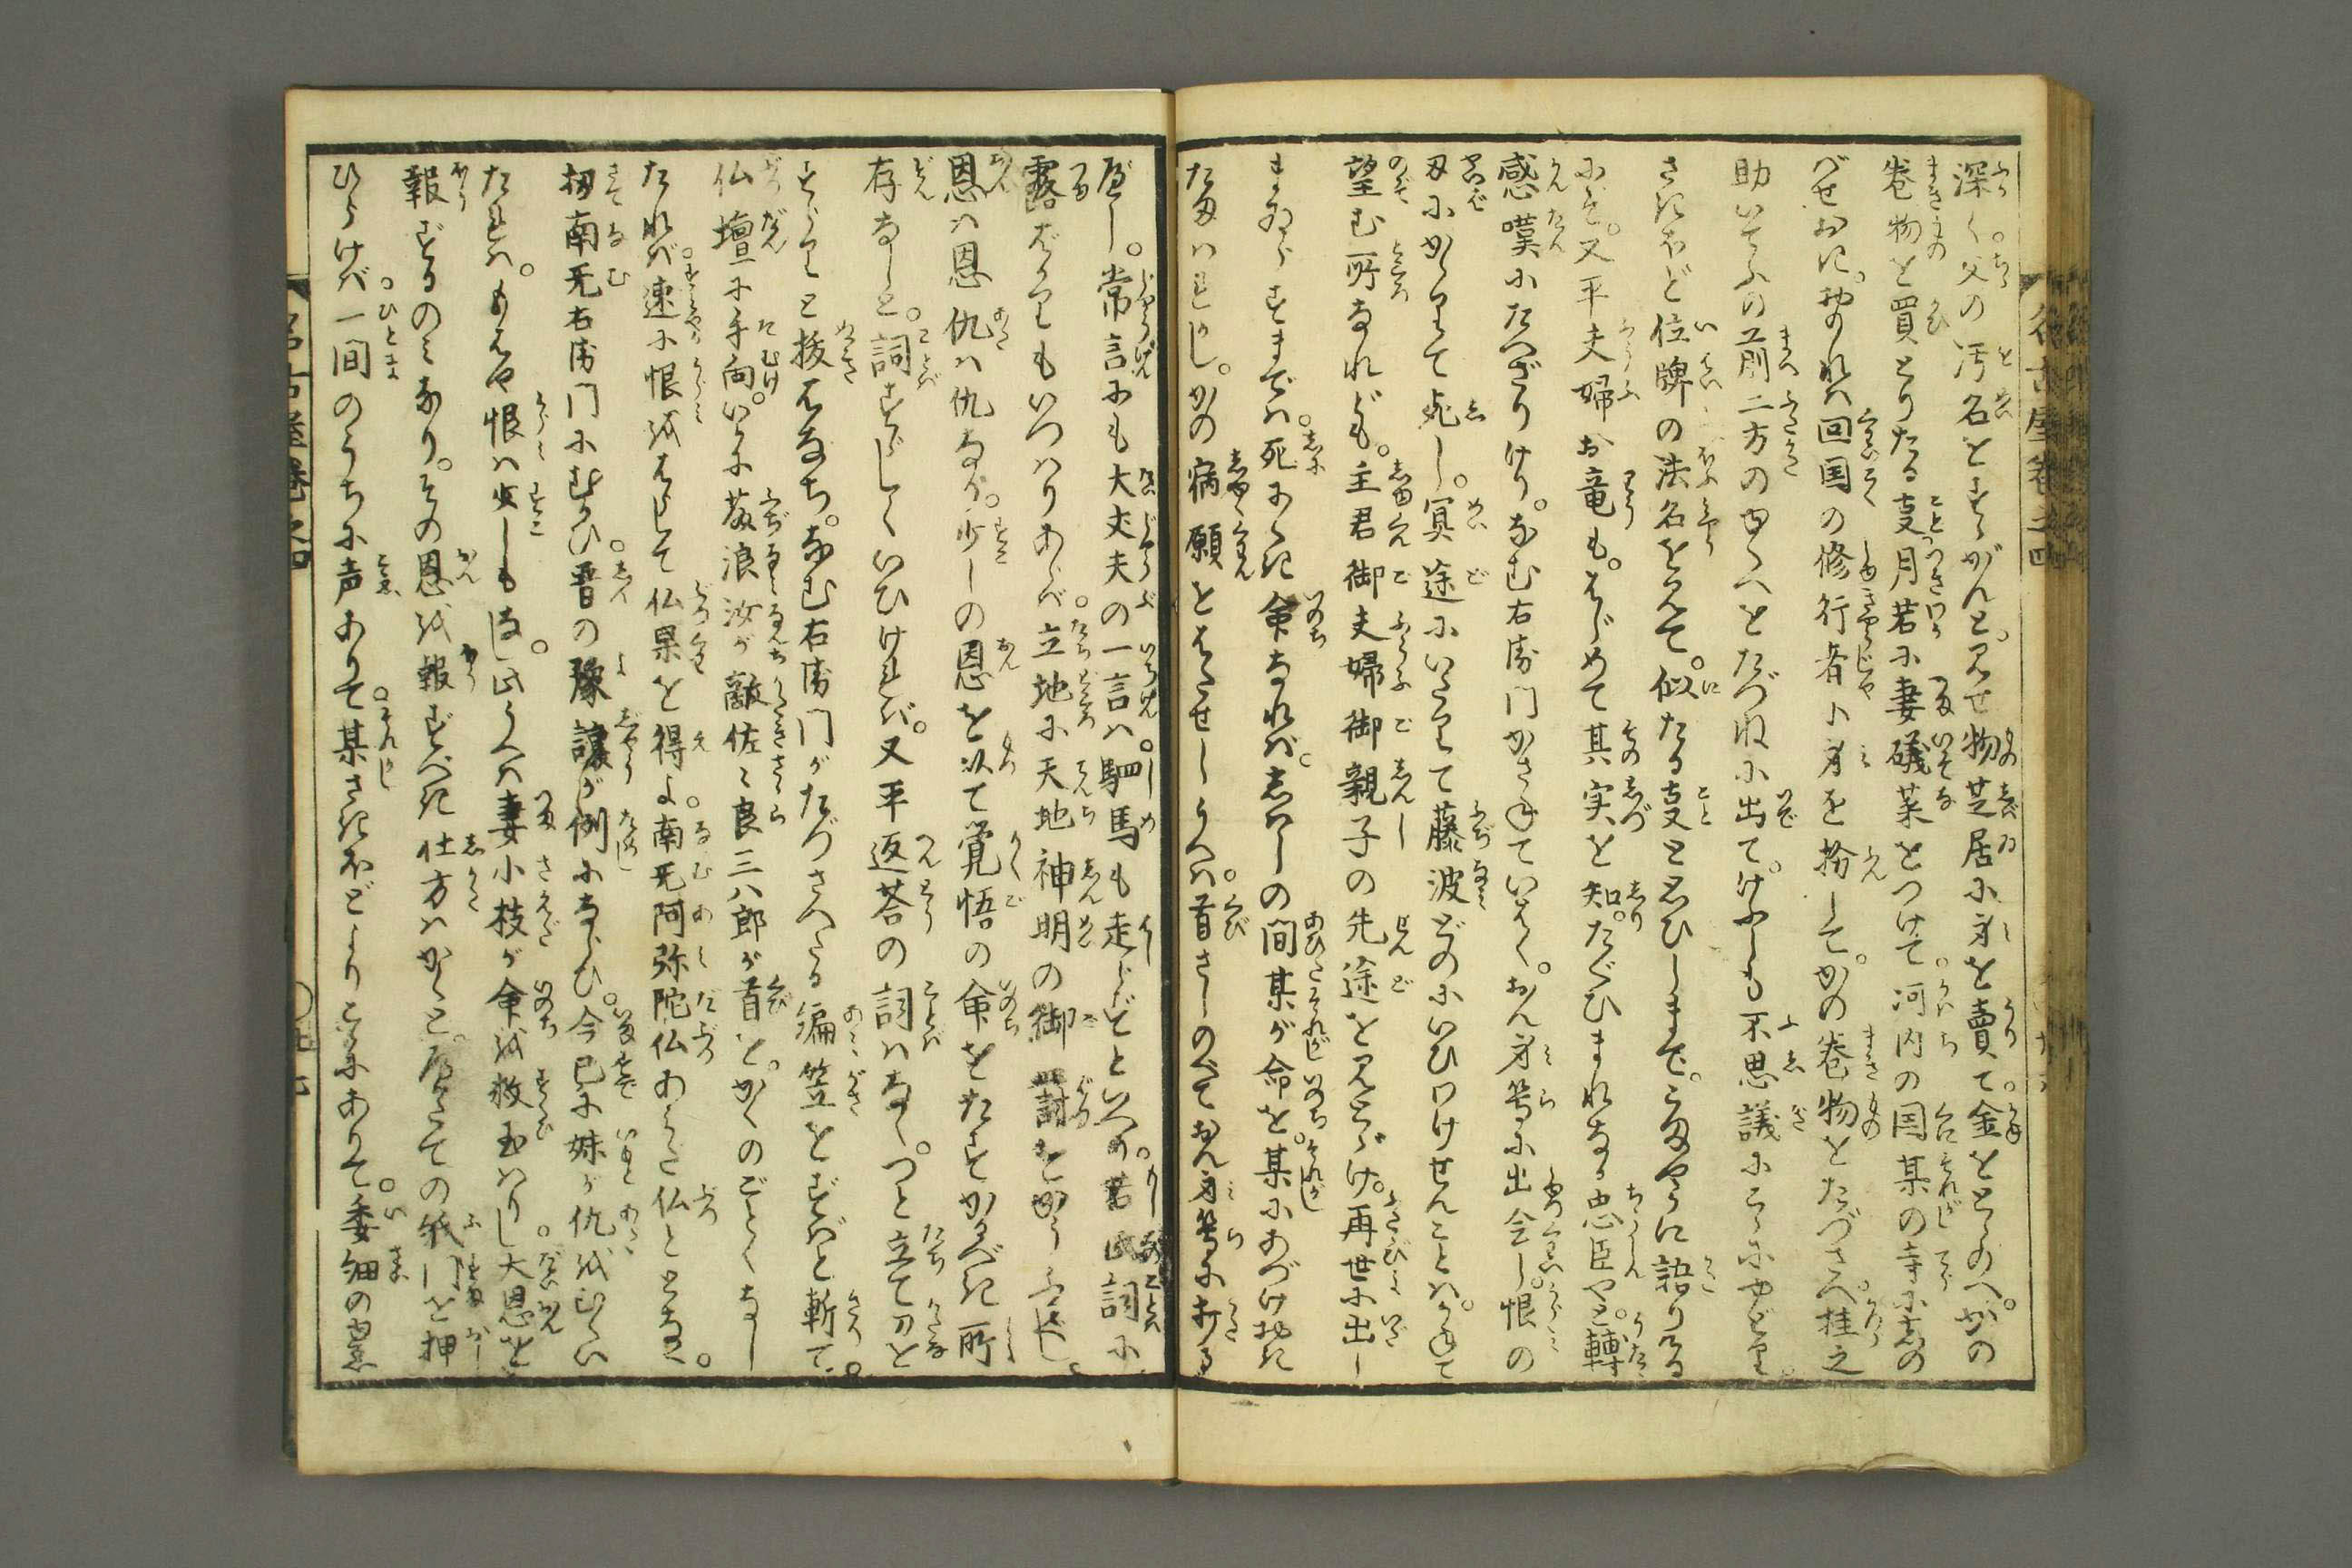 深く。父の汚名をすゝがんと。見せ物芝居に身を賣て。金をとゝのへ。かの
巻物を買とりたる事。月若に妻礒菜をつけて。河内の国某の寺にしの
ばせおき。おのれハ回国の修行者に身を扮して。かの巻物をたづさへ。桂之
助いてふの前二方のゆくへをたづねに出て。けふしも不思議にこゝにやどり。
さきほど位牌の法名を見て。似たる事と思ひしまで。こまやかに語りける
にぞ。又平夫婦お竜も。はじめて其実を知。たぐひまれなる忠臣やと。轉
感嘆にたへざりけり。なむ右衛門かさねていはく。おん身等に出会し。恨の
刃にかゝりて死し。冥途にいたりて藤波どのにいひわけせんことハ。かねて
望む所なれども。主君御夫婦御親子の先途を見とゞけ。再世に出し
まゐらするまでハ。死にがたき命なれバ。しばしの間某が命を。某にあづけおき
たまハれかし。かの病願をはたせしうへハ。首さしのべておん身等にわたる
べし。常言にも大丈夫の一言ハ。駟馬も走らずといへり。若此詞に
露ばかりもいつハりあらバ。立地に天地神明の御罰をかうふるべし。
恩ハ恩仇ハ仇なり。少しの恩を以て覚悟の命をたすかるべき所
存なしと。詞すゞしくいひけれバ。又平返荅の詞ハなく。つと立て刀を
すらりと抜はなち。なむ右衛門がたづさへたる編笠をずばと斬て。
仏壇に手向。いかに藤浪汝が敵佐々良三八郎が首を。かくのごとくなし
たれバ。速に恨をはらして仏果を得よ。南无阿弥陀仏あみだ仏ととなへ。
扨南无右衛門にむかひ。晋の豫讓が例にならひ。今已に妹が仇をむくい
たれハ。もはや恨ハ少しもなし。此うへハ妻小枝が命を救玉ハりし大恩を
報ずるのミなり。その恩を報ずべき仕方ハかくと。隔ての紙門を押
ひらけバ。一間のうちに声ありて。某さきほどよりこゝにありて。委細の意